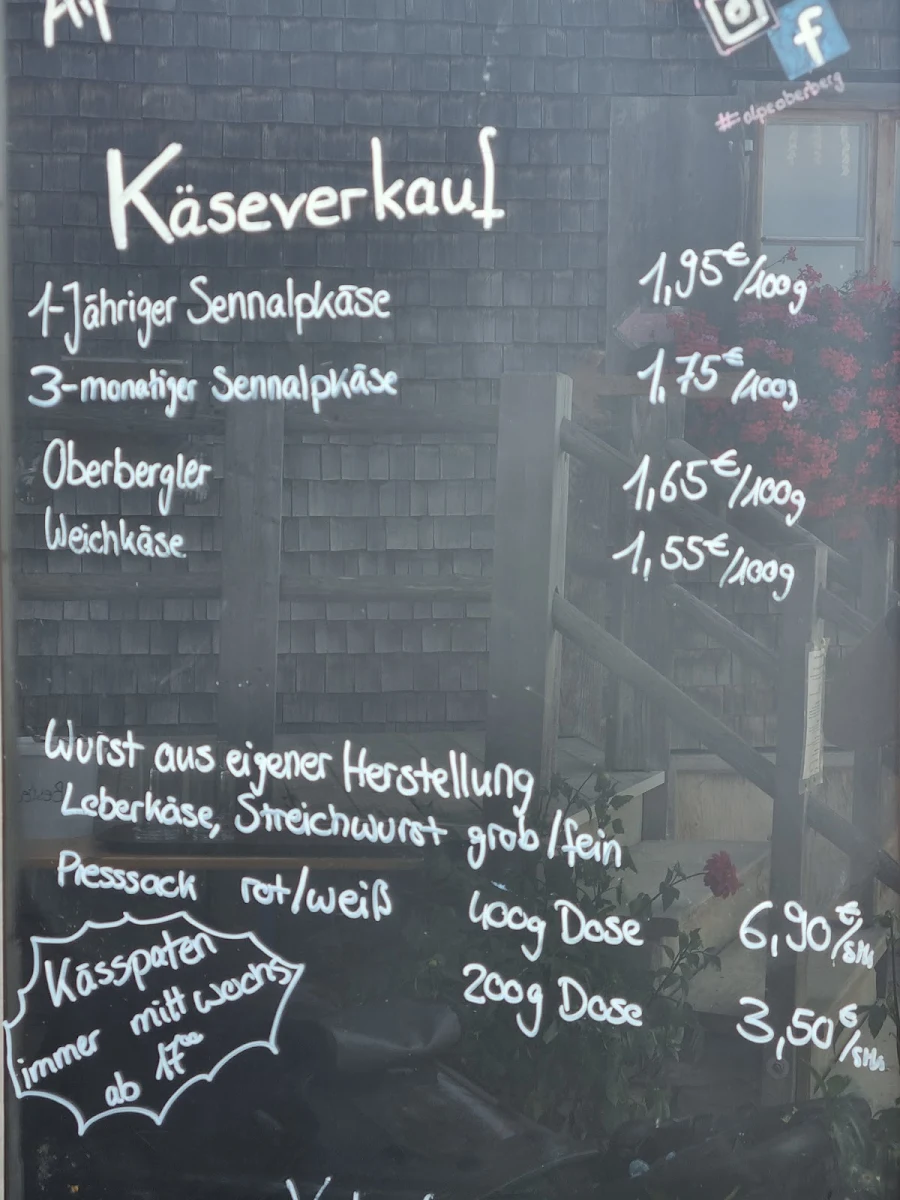 f
#alpeoberberg
Käseverkauf
1-Jähriger Sennalpkäse 1,95€/100g
3-monatiger Sennalpkäse 1,75€/100g
Oberbergler 1,65€/100g
Weichkäse 1,55€/100g
Wurst aus eigener Herstellung
Leberkäse, Streichwurst grob/fein
Presssack rot/weiß
400g Dose 6,90€/Stk
200g Dose 3,50€/Stk
Kässpaten
immer mittwochs
ab 17⁰⁰